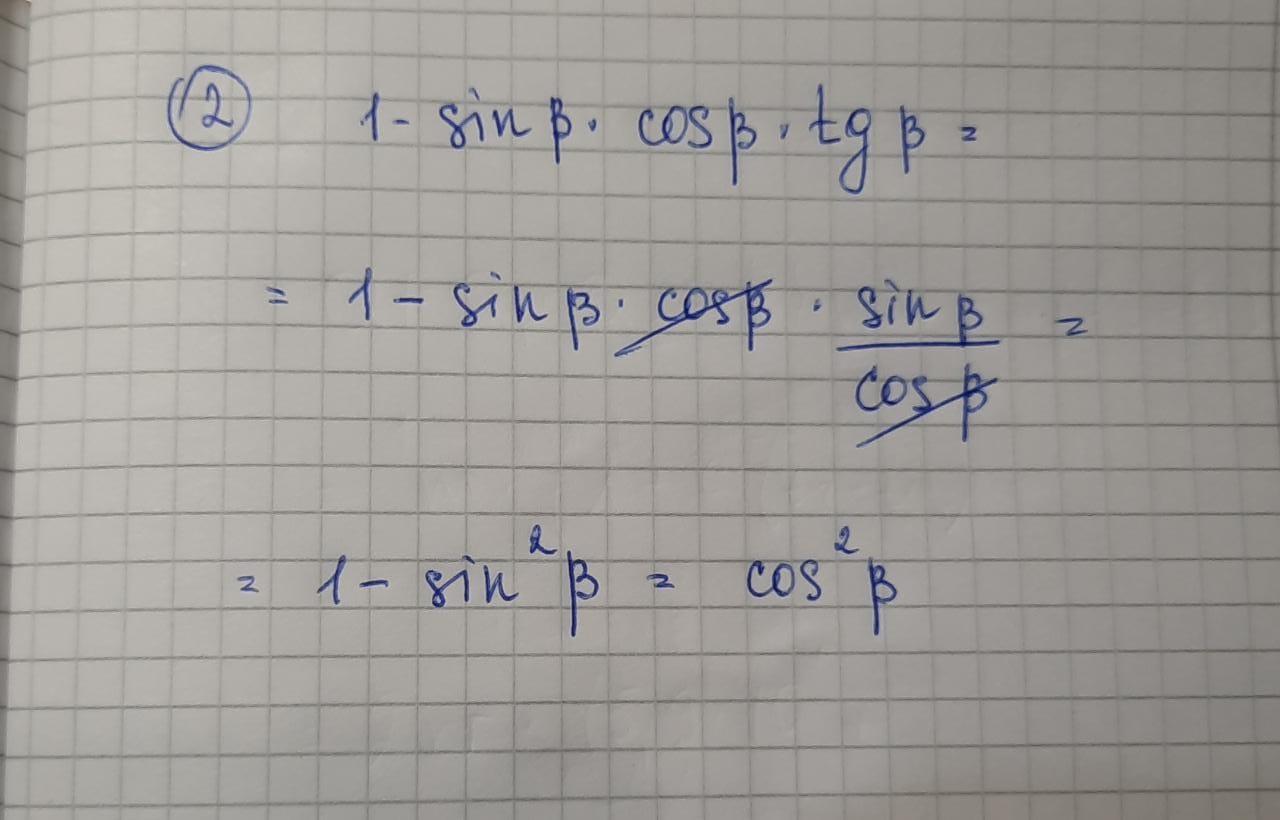 2 1 - sin β · cos β · tg β =
= 1 - sin β · cos β · sin β / cos β =
= 1 - sin² β = cos² β